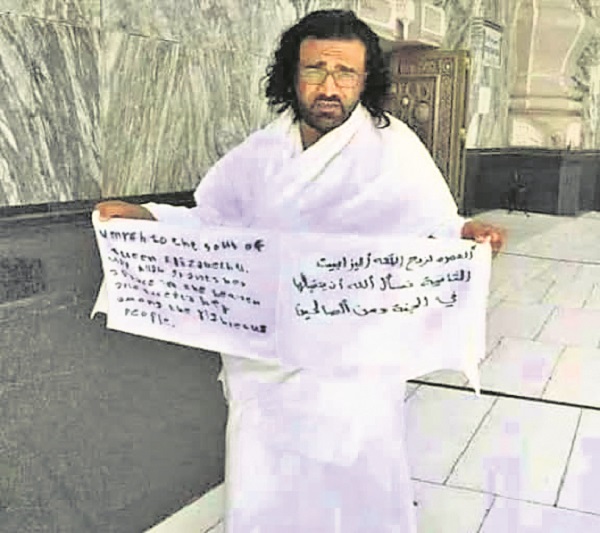 umrah to the soul of
Queen Elizabeth II.
may Allah grants her
in the heaven
and accepts her
among the righteous
people.
العمره لروح الملكه أليزابيت
الثانية نسأل الله ان يتقبلها
في الجنة ومن الصالحين